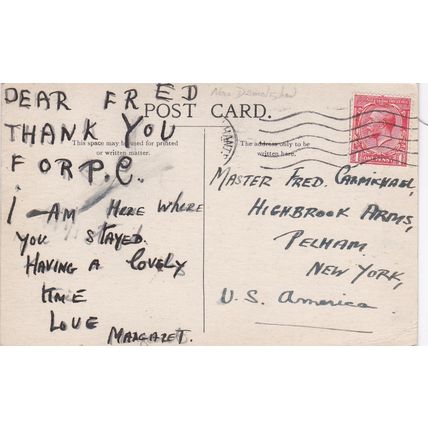 DEAR FRED
THANK YOU
FOR P.C.
I AM HERE WHERE
YOU STAYED.
HAVING A LOVELY
TIME
LOVE
MARGARET.
POST CARD.
This space may be used for printed
or written matter.
The address only to be
written here.
MASTER FRED. CARMICHAEL,
HIGHBROOK ARMS,
PELHAM.
NEW YORK,
U.S. America.
ONE PENNY